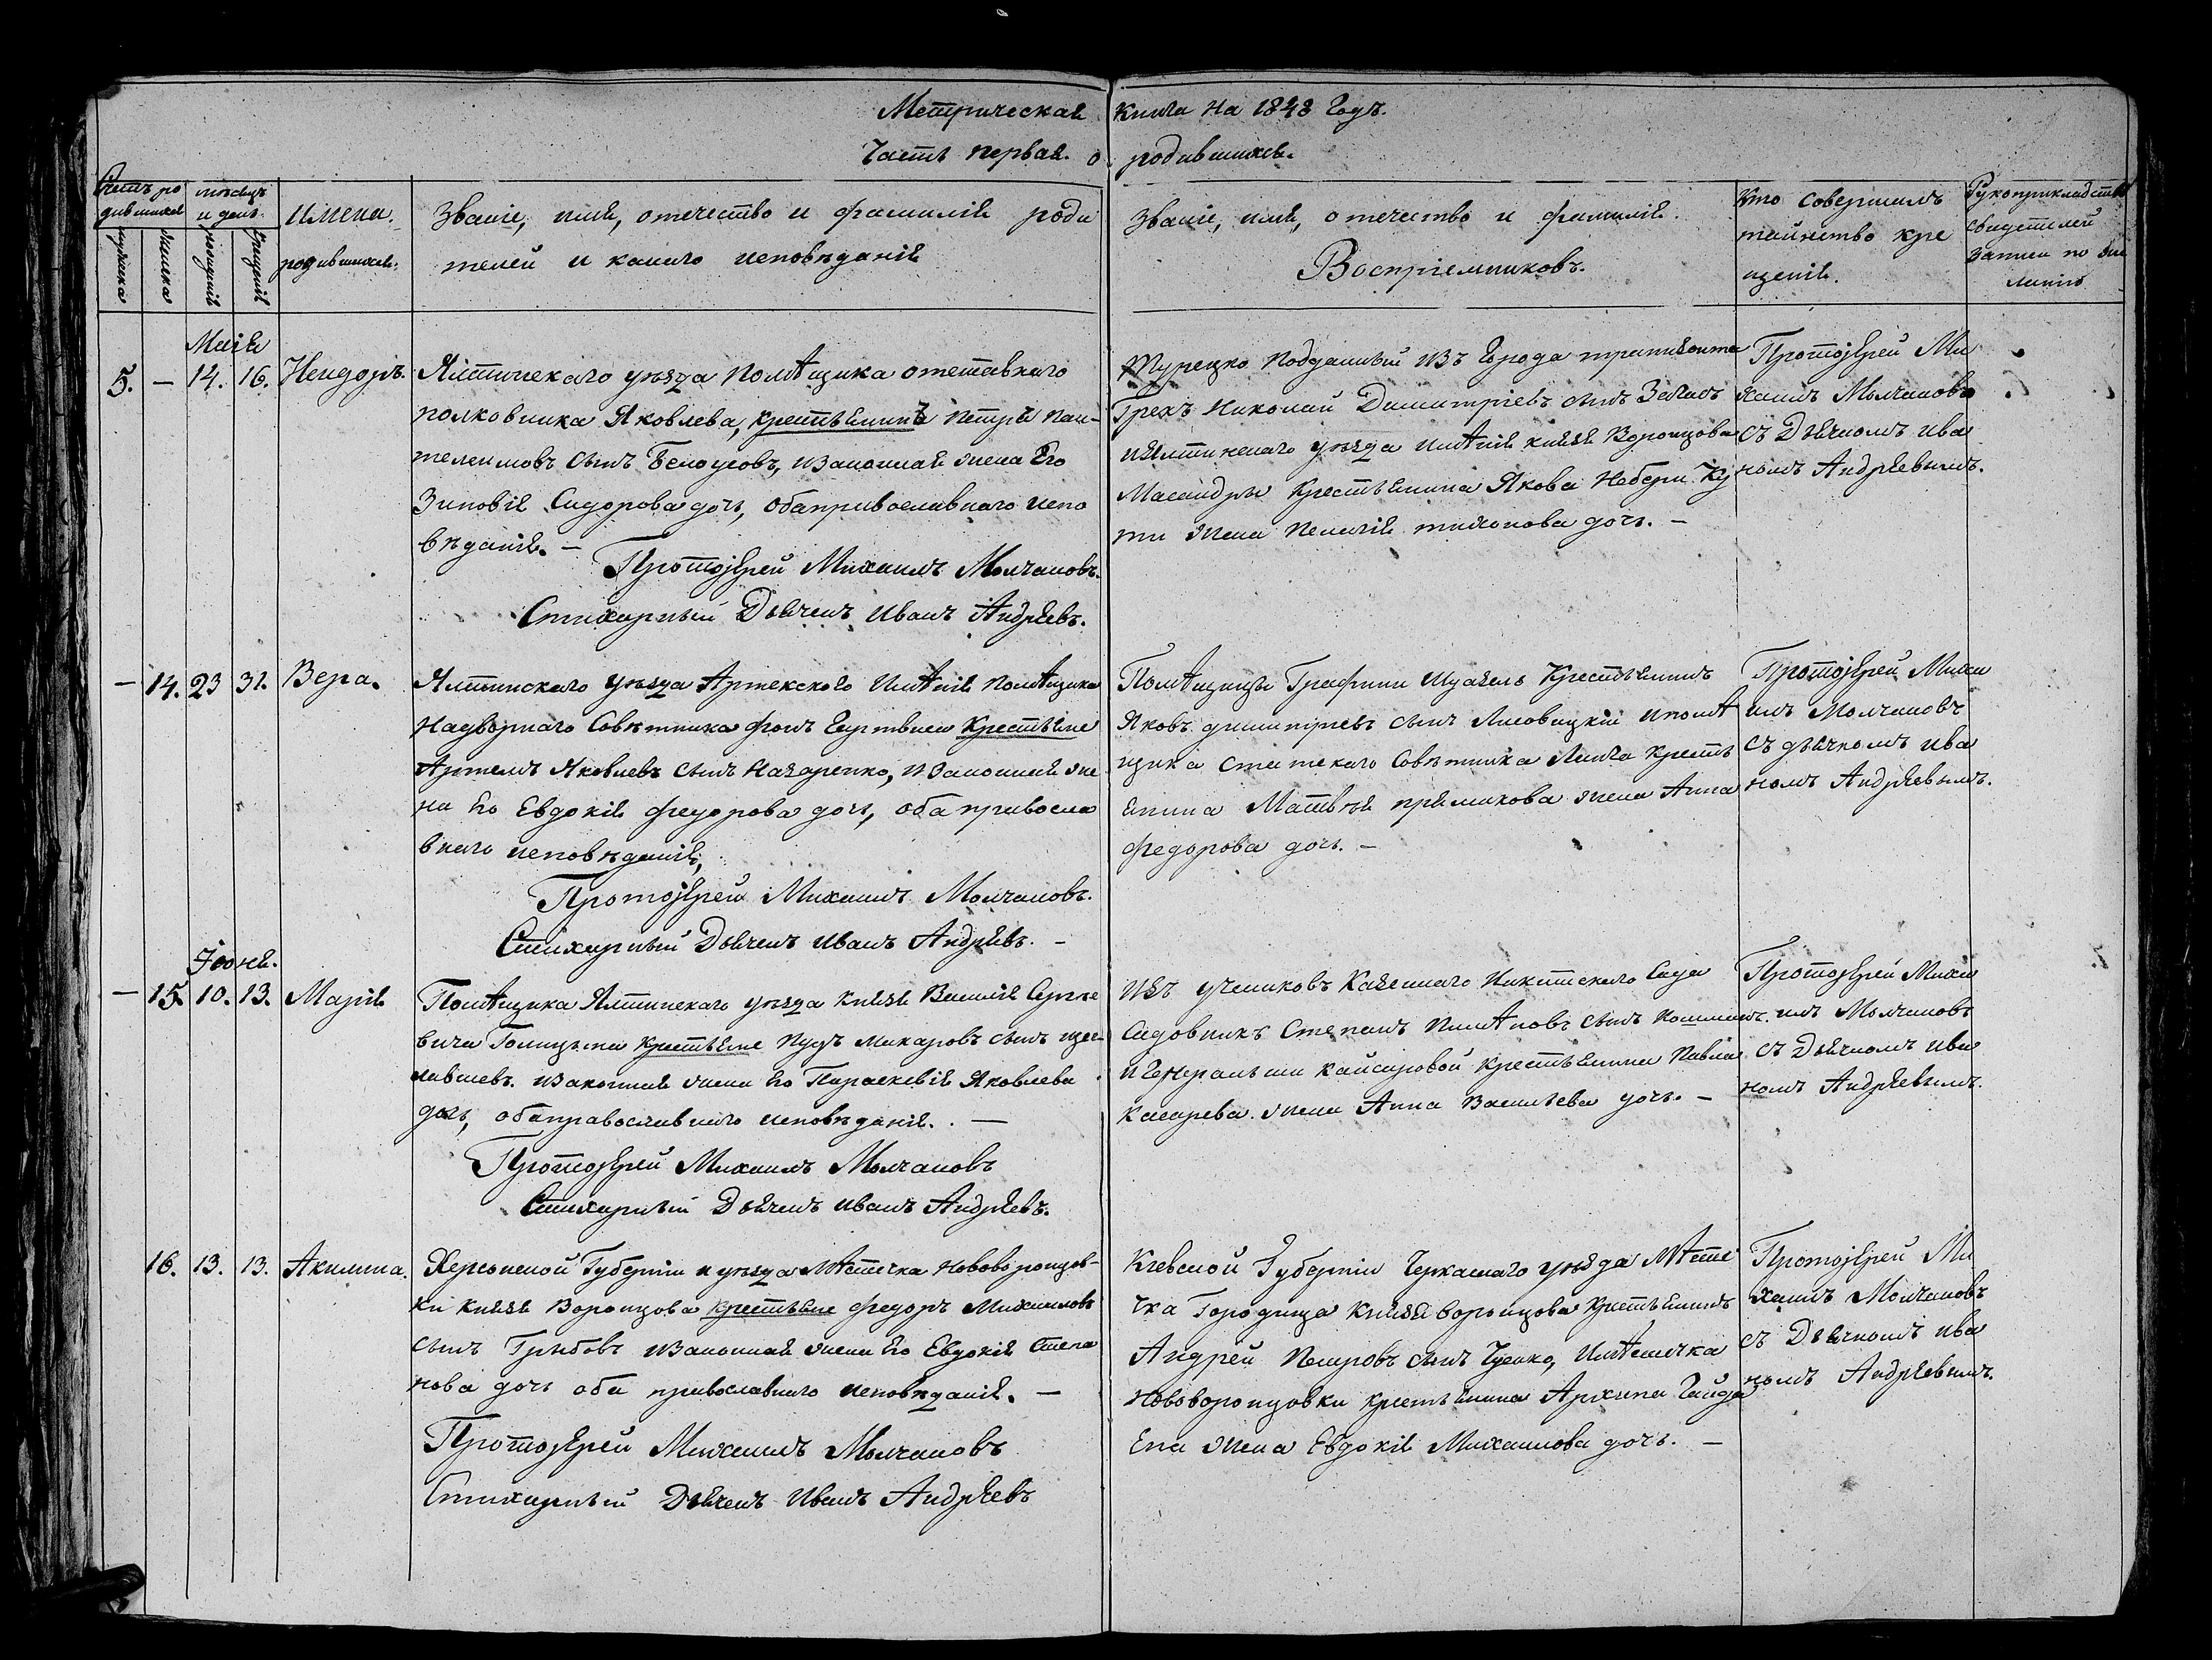 Метрическая Книга на 1848 Годъ.
Часть первая. о родившихся.
Счетъ ро
дившихся
мужеска
женска
месяцъ
и день.
рожденія
крещенія
имена
родившихся.
Званіе, имя, отечество и фамилія роди
телей и какаго исповѣданія
Званіе, имя, отечество и фамилія.
Воспріемниковъ.
Кто совершалъ
таинство кре
щенія.
Рукоприкладство
свидетелей
записи по
Маія
5. — 14. 16.
Ялтинскаго уѣзда помѣщика отставнаго
полковника Яковлева, крестьянинъ Петръ Пан-
телеимовъ сынъ Белоусовъ, изаконная жена Его
Зиновія Сидорова дочь, оба православнаго испо
вѣданія. —
Протоіерей Михаилъ Молчановъ.
Стихарный Дьячекъ Иванъ Андреевъ.
Турецко подданный изъ города
Грекъ Николай Димитріевъ сынъ
иялтинскаго уѣзда имѣнія князя Воронцова
Масандры Крестьянина Якова Небери Ку
ти жена Пелагія тихонова дочь. —
Протоіерей Ми
хаилъ Молчановъ
съ Дьячкомъ Ива
номъ Андреевымъ.
— 14. 23 31. Вера.
Ялтинскаго уѣзда Артекскаго имѣнія помѣщика
Надворнаго Совѣтника фонъ Гартвиса Крестьяне
Артемъ Яковлевъ сынъ Назаренко, изаконная же
на Его Евдокія федорова дочь, оба правосла
внаго исповѣданія,
Протоіерей Михаилъ Молчановъ.
Стихарный Дьячекъ Иванъ Андреевъ. —
Помѣщицы Графини Шуазель Крестьянинъ
Яковъ димитріевъ сынъ Лисовицкій ипомѣ
щика статскаго Совѣтника крестья
янина Матвѣя примакова жена Анна
федорова дочь. —
Протоіерей Миха
илъ Молчановъ
съ дьячкомъ ива
номъ Андреевымъ.
Іюня.
— 15. 10. 13. Марія
Помѣщика Ялтинскаго уѣзда князя Василія Сергѣе
вича Голицына крестьяне Пудъ макаровъ сынъ
изаконная жена Его Параскевія Яковлева
дочь, оба православнаго исповѣданія. —
Протоіерей Михаилъ Молчановъ
Стихарный Дьячекъ Иванъ Андреевъ.
Изъ учениковъ Казеннаго Никитскаго Сада
Садовникъ Степанъ сынъ
и Генеральши кайсаровой крестьянина Павла
Касарева жена Анна Васильева дочь. —
Протоіерей Миха
илъ Молчановъ
съ Дьячкомъ Ива
номъ Андреевымъ.
16. 13. 13. Акилина.
Херсонской Губерніи и уѣзда Мѣстечка Нововоронцов-
ки князя Воронцова крестьяне федоръ Михаиловъ
сынъ Грибовъ изаконная жена Его Евдокія Степа
нова дочь оба православнаго исповѣданія. —
Протоіерей Михаилъ Молчановъ
Стихарный Дьячекъ Иванъ Андреевъ
Кіевской Губерніи Черкаскаго уѣзда Мѣсте
чка Городища Князя воронцова крестьянинъ
Андрей Петровъ сынъ имѣстечка
Нововоронцовки крестьянина Архипа Гайда
Ена жена Евдокія Михаилова дочь. —
Протоіерей Ми
хаилъ Молчановъ
съ Дьячкомъ Ива
номъ Андреевымъ.